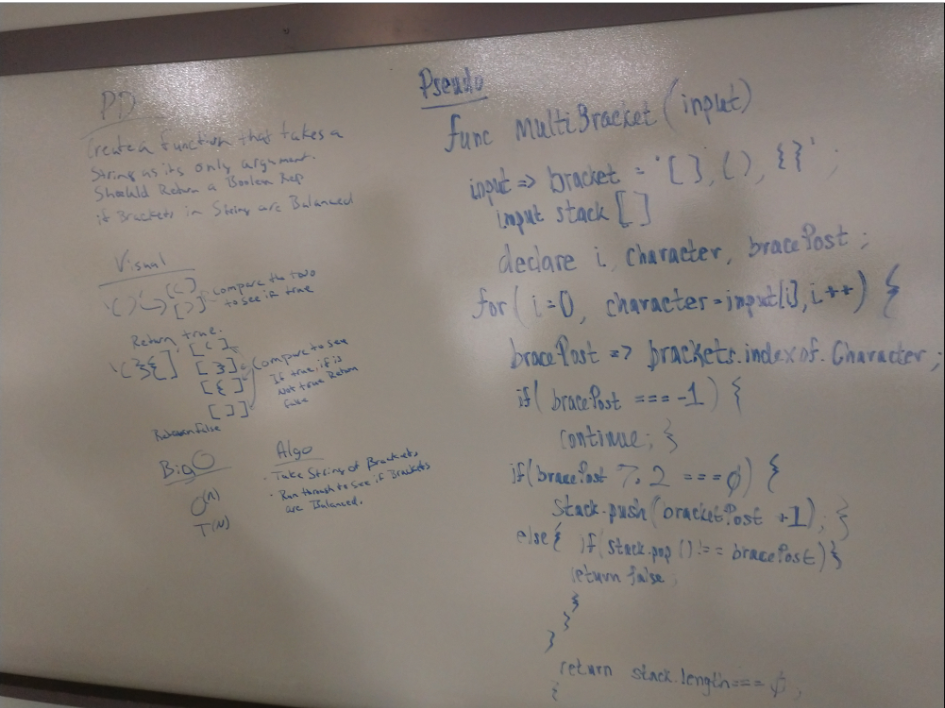 PD
Create a function that takes a
String as its only argument.
Should Return a Boolean Rep
if Brackets in String are Balanced
Visual
[(]
'()
[)]
compare the two
to see if true
Return true.
'(}{]
[(]
[}]
[{]
[]]
compare to see
If true, if is
Not true Return
false
Return False
Big O
O(n)
T(N)
Algo
· Take String of Brackets
· Run through to see if Brackets
are Balanced.
Pseudo
func MultiBracket (input)
input => bracket = '[], (), {}' ;
input stack []
declare i, character, bracePost ;
for( i=0, character=input[i], i++) {
bracePost => brackets.indexof.Character ;
if( bracePost === -1) {
continue; }
if(bracePost % 2 === 0) {
stack.push(bracketPost +1); }
else{ if(stack.pop () !== bracePost)}
return false;
}
}
}
return stack.length === 0;
{